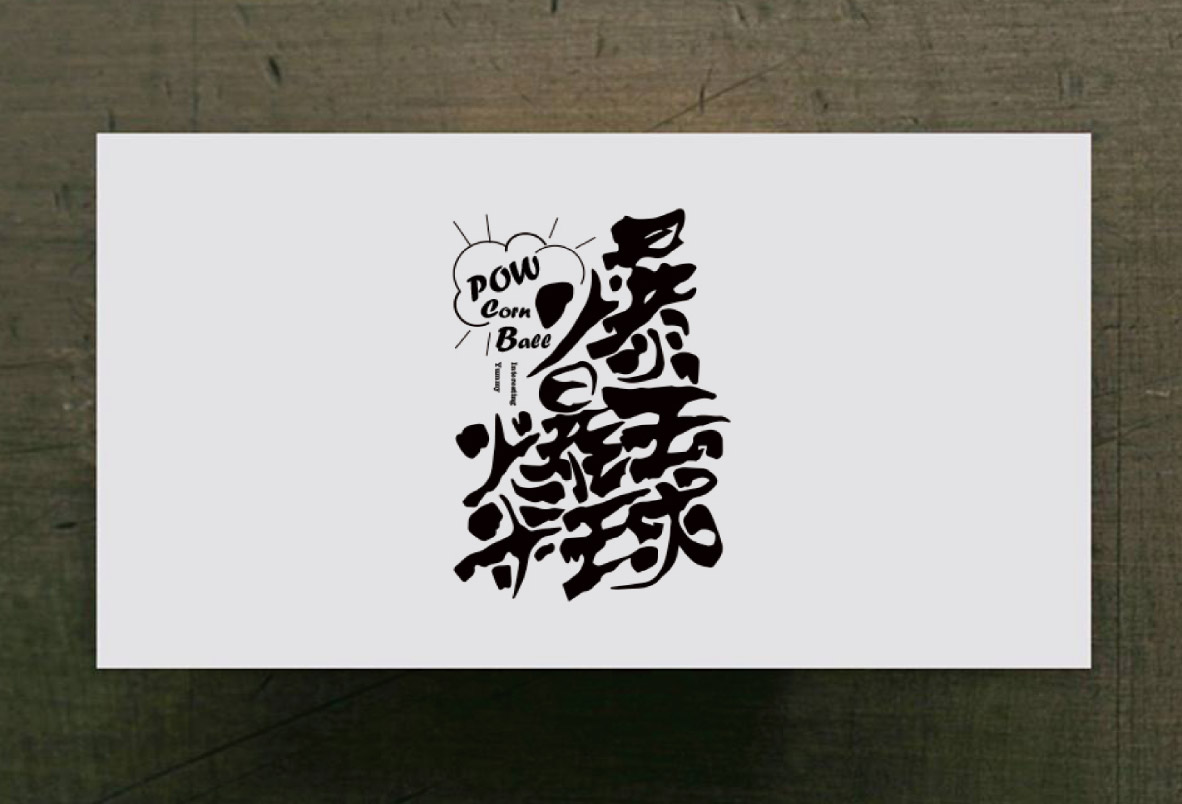 POW
Corn
Ball
Interesting
Yummy
爆
爆玉
米球